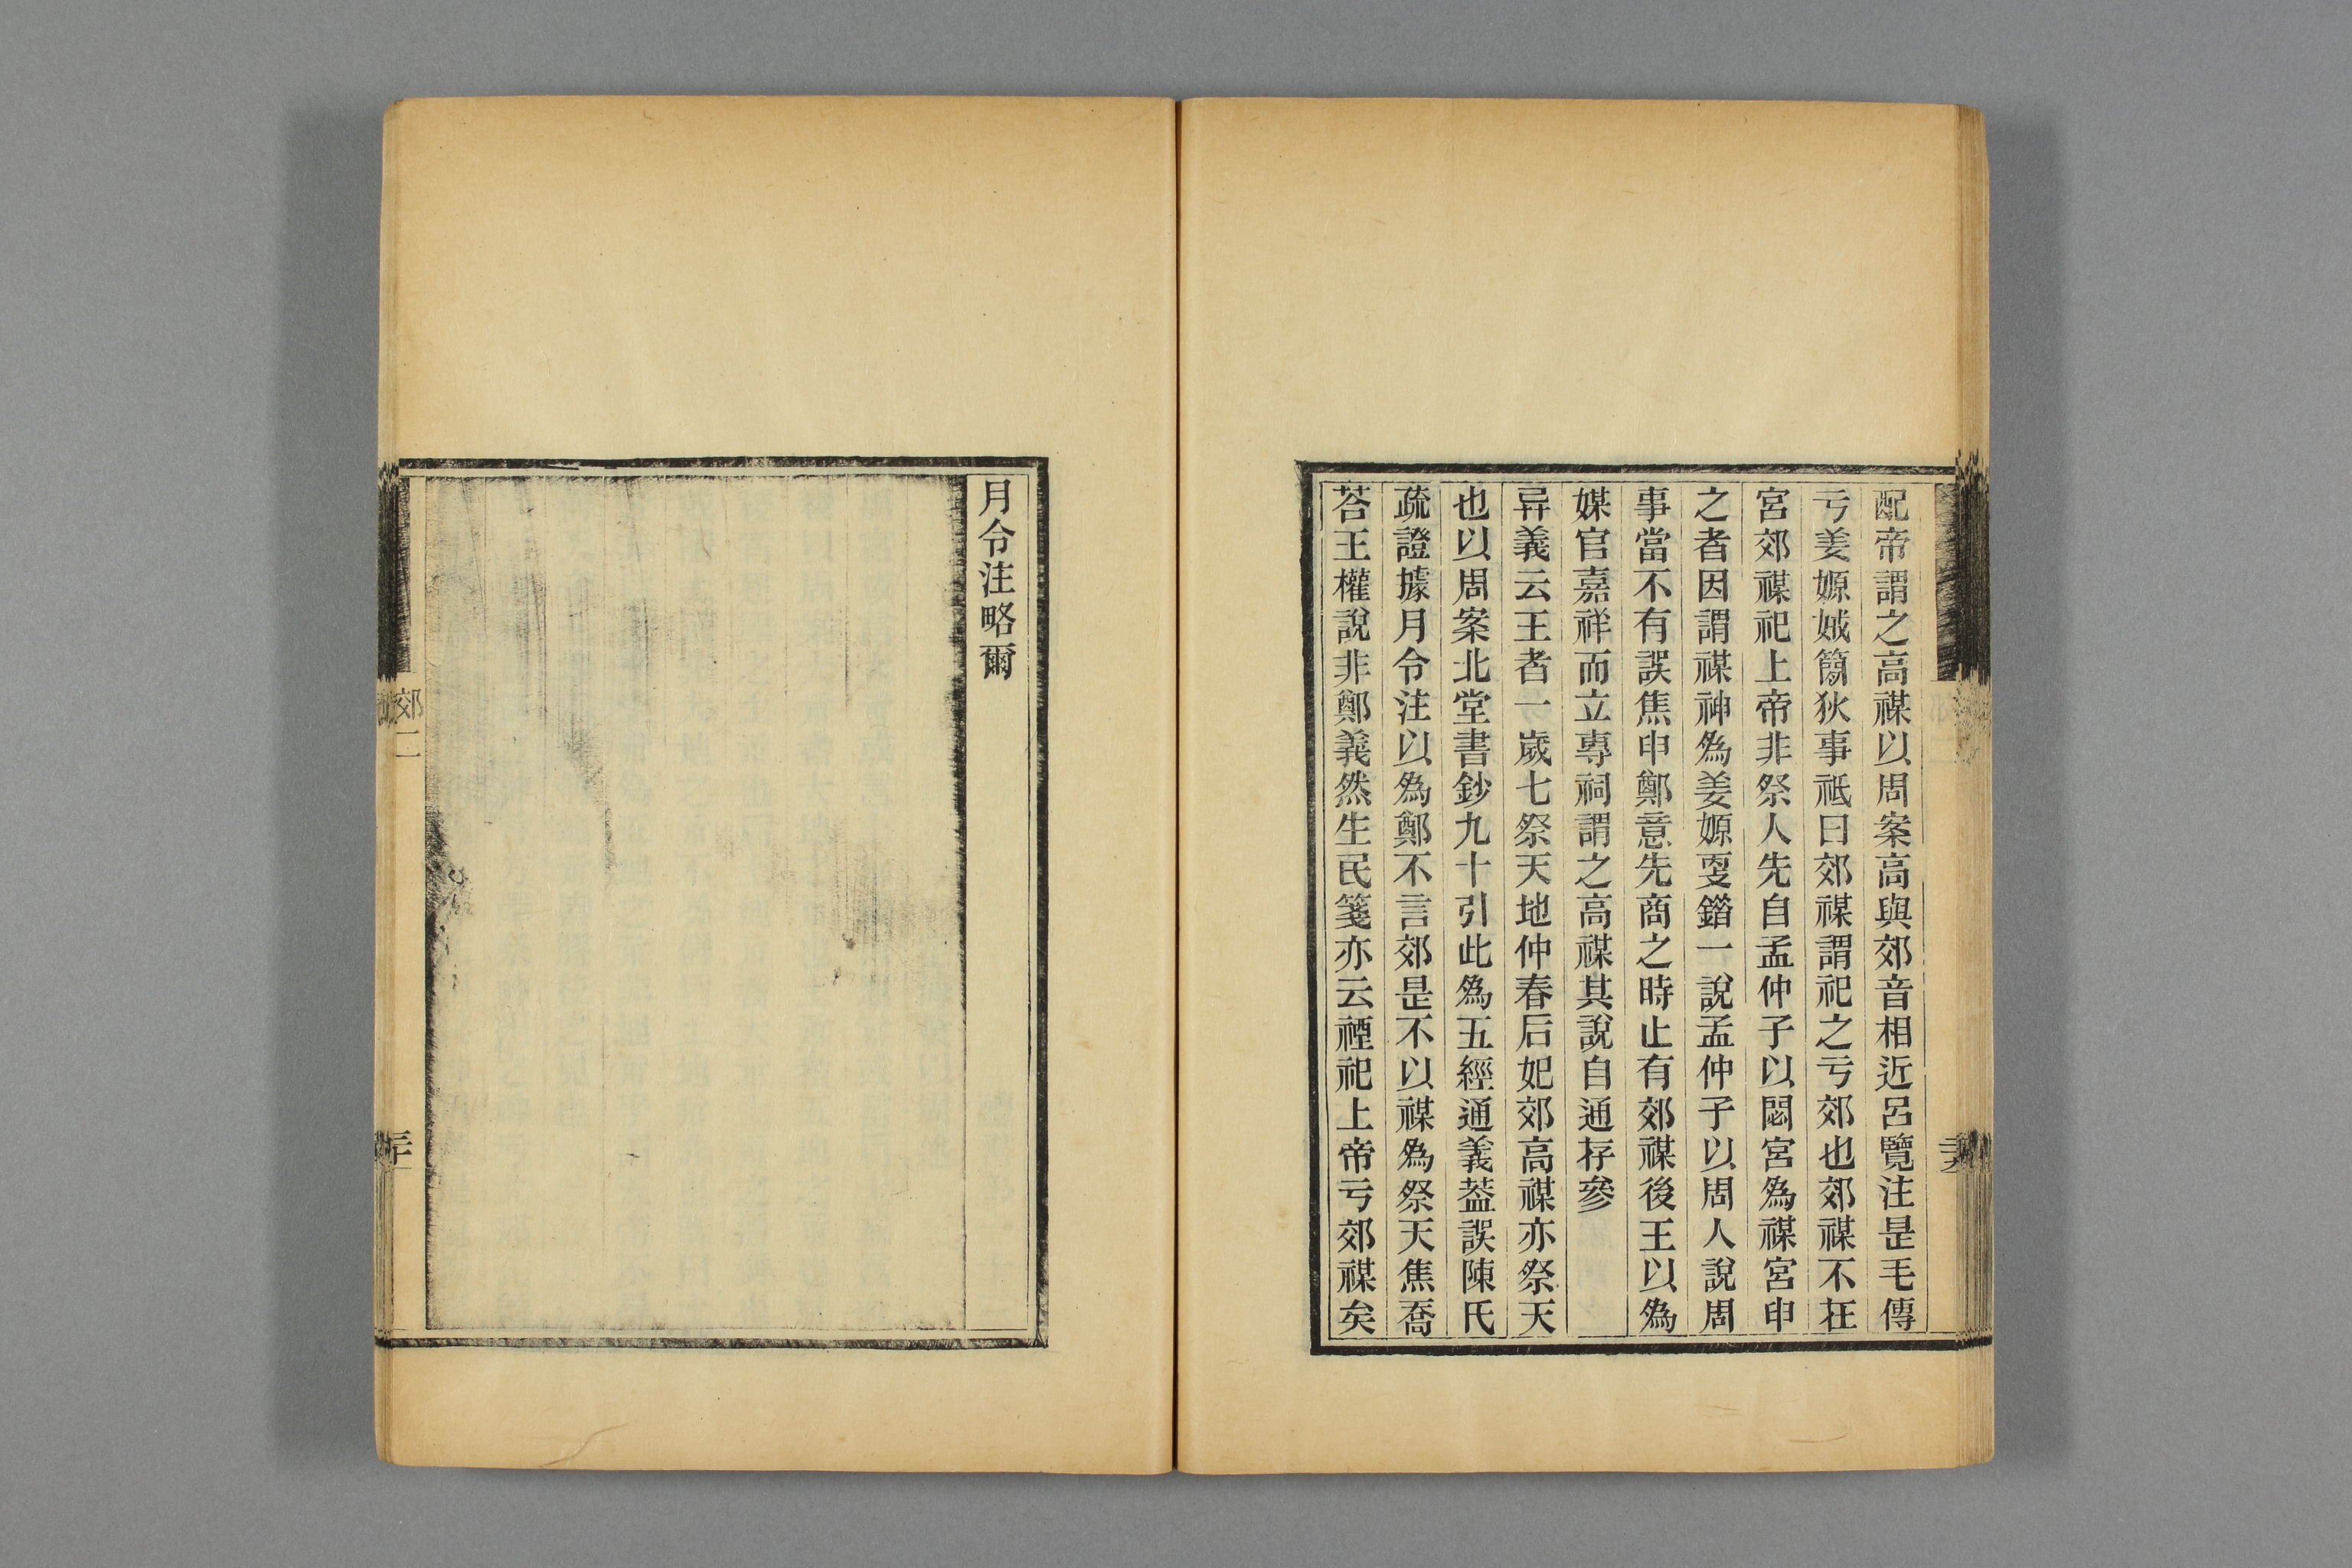 配帝謂之高禖以周案高與郊音相近呂覽注是毛傳
亏姜嫄娀簡狄事祗曰郊禖謂祀之亏郊也郊禖不在
宮郊禖祀上帝非祭人先自孟仲子以閟宮爲禖宮申
之者因謂禖神爲姜嫄叓鍇一說孟仲子以周人說周
事當不有誤焦申鄭意先商之時止有郊禖後王以爲
媒官嘉祥而立專祠謂之高禖其說自通存參
异義云王者一歲七祭天地仲春后妃郊高禖亦祭天
也以周案北堂書鈔九十引此爲五經通義葢誤陳氏
疏證據月令注以爲鄭不言郊是不以禖爲祭天焦喬
荅王權說非鄭義然生民箋亦云禋祀上帝亏郊禖矣
月令注略爾
郊二
三十